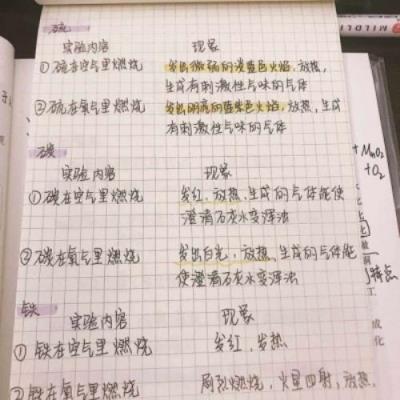 硫
实验内容 现象
①硫在空气里燃烧 发出微弱的淡蓝色火焰,放热,
生成有刺激性气味的气体
②硫在氧气里燃烧 发出明亮的蓝紫色火焰,放热,生成
有刺激性气味的气体
碳
实验内容 现象
①碳在空气里燃烧 发红,放热,生成的气体能使
澄清石灰水变浑浊
②碳在氧气里燃烧 发出白光,放热,生成的气体能
使澄清石灰水变浑浊
铁
实验内容 现象
①铁在空气里燃烧 发红,发热
②铁在氧气里燃烧 剧烈燃烧,火星四射,放热,
MILDLI
+ MnO2
+ O2
特点
工
成
化